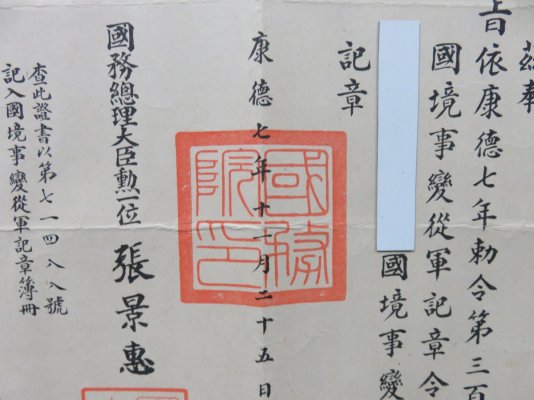 茲奉
旨依康德七年勅令第三百
國境事變從軍記章令
國境事變
記章
康德七年十一月二十五日
國務院印
國務總理大臣勲一位 張景惠
查此證書以第七一四八八號
記入國境事變從軍記章簿冊